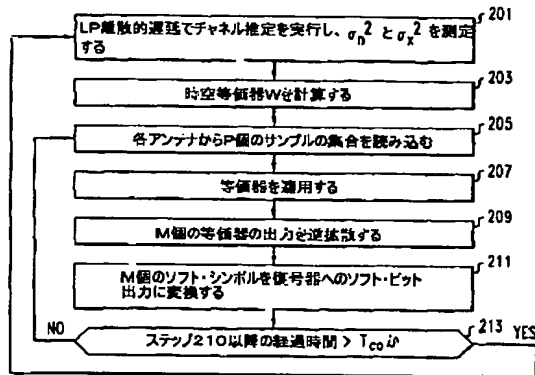 201
LP離散的遅延でチャネル推定を実行し、σn² とσx² を測定
する
203
時空等価器Wを計算する
205
各アンテナからP個のサンプルの集合を読み込む
207
等価器を適用する
209
M個の等価器の出力を逆拡散する
211
M個のソフト・シンボルを復号器へのソフト・ビット
出力に変換する
213
NO
ステップ210以降の経過時間 > Tcoか
YES